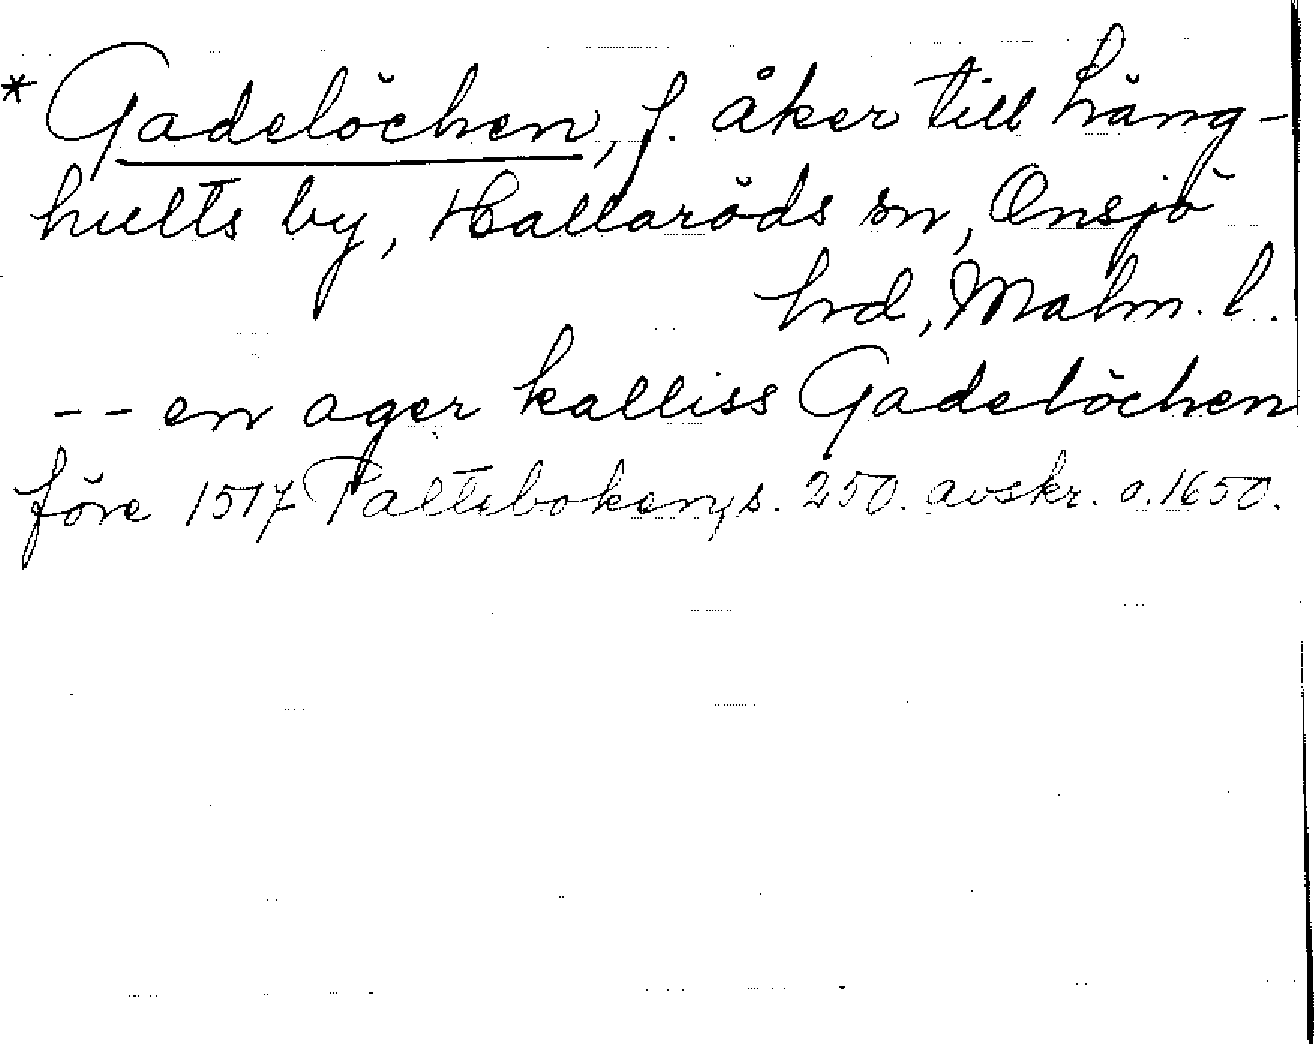 * Gadelöchen, f. åker till häng-
hults by, Hallaröds sn, Onsjö
hd, Malm. l.
-- en ager kalliss Gadelöchen
före 1517 Paltebokens. 250. avskr. a. 1650.